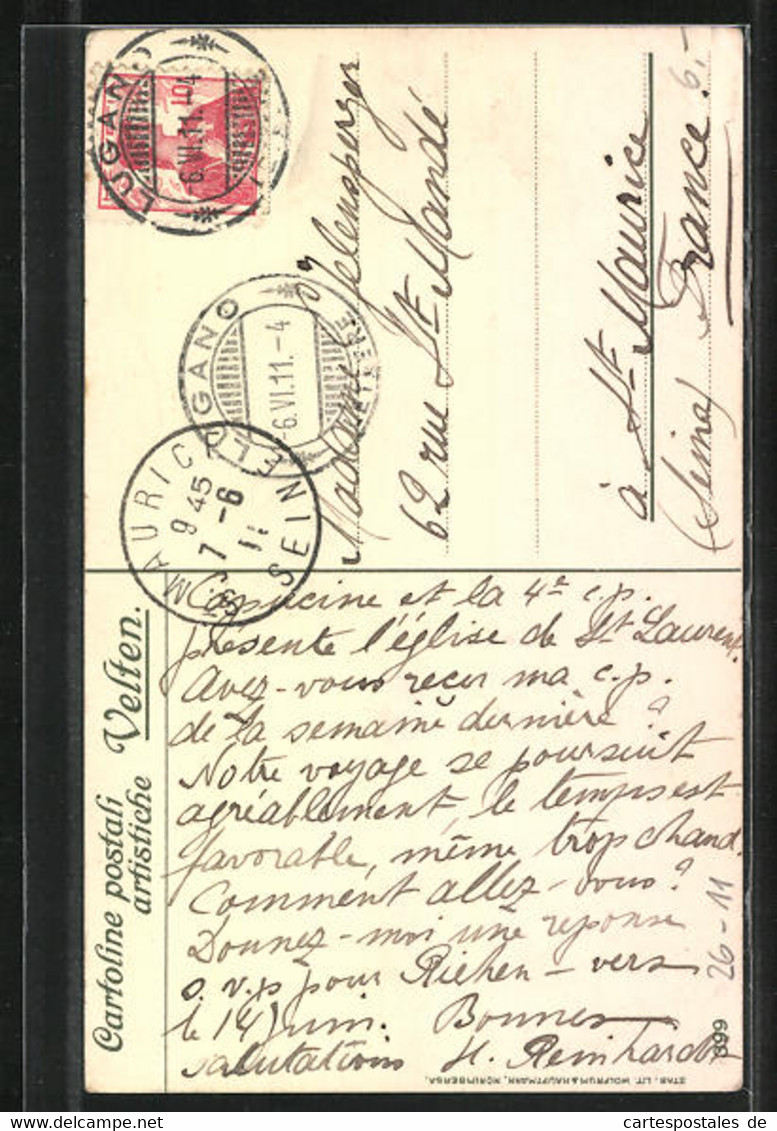 Cartoline postali
artistiche Velten.
Capucine et la 4e c.p.
présente l'église de St Laurent.
Avez-vous recu ma c.p.
de la semaine dernière ?
Notre voyage se poursuit
agréablement, le temps est
favorable, même trop chaud.
Comment allez-vous ?
Donnez-moi une reponse
s.v.p pour Riehen - vers
le 14 Juin. Bonnes
salutations H. Reinhardt
LUGANO
6.VI.11.-4
LUGANO
-6.VI.11.-4
LETTERE
ST MAURICE
9 45
7 -6
11
SEINE
Madame Jelensperger
62 rue St Mandé
à St Maurice
(Seine) France
6,-
26-11
669
STAB. LIT. WOLFRUM & HAUPTMANN, NORIMBERGA.
www.delcampe.net
cartespostales de